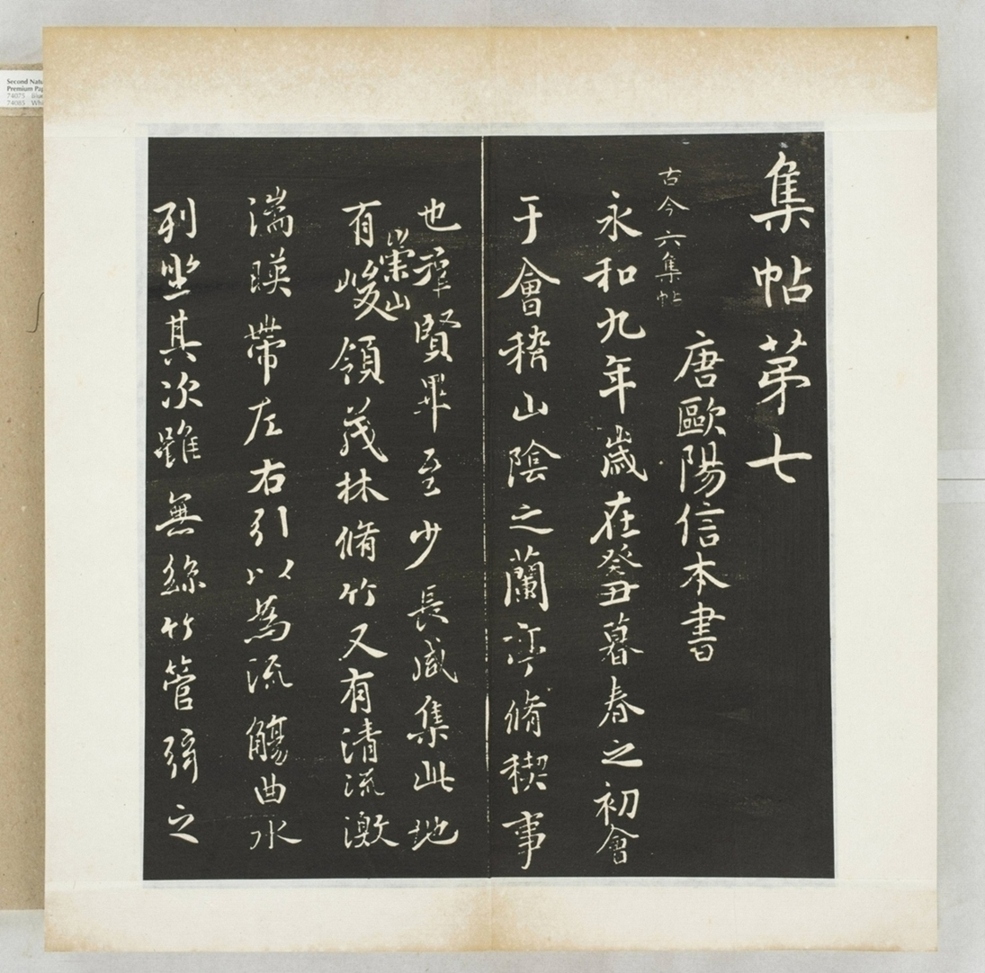 集帖苐七
古今六集帖
唐歐陽信本書
永和九年歲在癸丑暮春之初會
于會稽山陰之蘭亭脩稧事
也羣賢畢至少長咸集此地
有崇山峻領茂林脩竹又有清流激
湍暎帶左右引以為流觴曲水
列坐其次雖無絲竹管弦之
Second Natu
Premium Pap
74075
74085